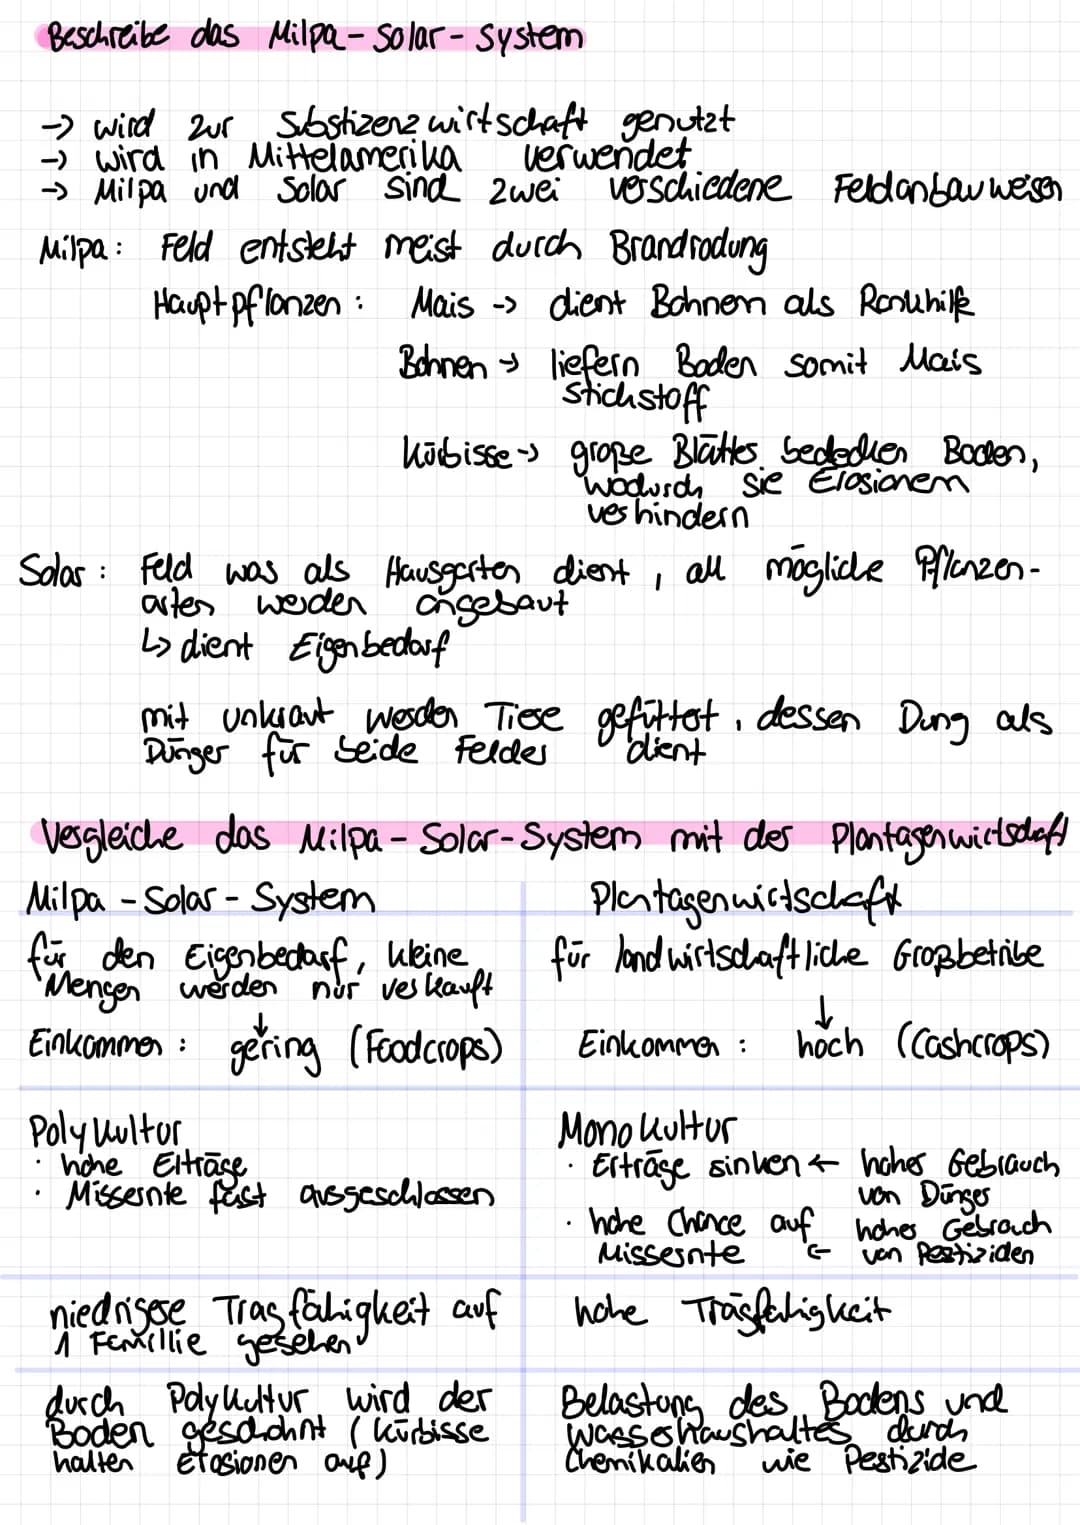 Beschreibe das Milpa-Solar-System
→ wird zur Substizenzwirtschaft genutzt
→ wird in Mittelamerika verwendet
→ Milpa und Solar sind zwei verschiedene Feldanbauweisen
Milpa: Feld entsteht meist durch Brandrodung
Hauptpflanzen: Mais → dient Bohnen als Rankhilfe
Bohnen → liefern Boden somit Mais
Stickstoff
Kürbisse → große Blätter bedecken Boden,
wodurch sie Erosionen
verhindern
Solar: Feld was als Hausgarten dient, all mögliche Pflanzen-
arten werden angebaut
↳ dient Eigenbedarf
mit Unkraut werden Tiere gefüttert, dessen Dung als
Dünger für beide Felder dient
Vergleiche das Milpa-Solar-System mit der Plantagenwirtschaft
Milpa-Solar-System
Plantagenwirtschaft
für den Eigenbedarf, kleine
Mengen werden nur verkauft
↓
Einkommen: gering (Foodcrops)
für landwirtschaftliche Großbetribe
↓
Einkommen: hoch (Cashcrops)
Polykultur
· hohe Elträge
· Missernte fast ausgeschlossen
Monokultur
· Erträge sinken ← hoher Gebrauch
von Dünger
· hohe Chance auf hoher Gebrauch
Missernte ← von Pestiziden
niedrigere Tragfähigkeit auf
1 Famillie gesehen
hohe Tragfähigkeit
durch Polykultur wird der
Boden geschohnt (Kürbisse
halten Erosionen auf)
Belastung des Bodens und
Wasserhaushaltes durch
Chemikalien wie Pestizide